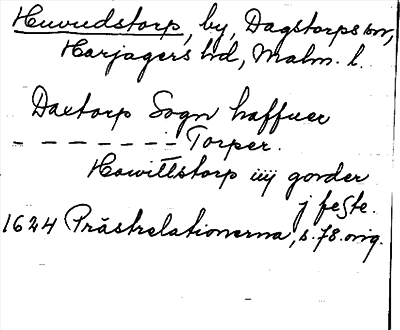 Huvudstorp, by, Dagstorps sn,
Harjagers hd, Malm. l.
Daxtorp Sogn haffuer
- - - - - - - Torper.
Howittstorp iiij gorder
j feste.
1624 Prästrelationerna, s. 78. orig.